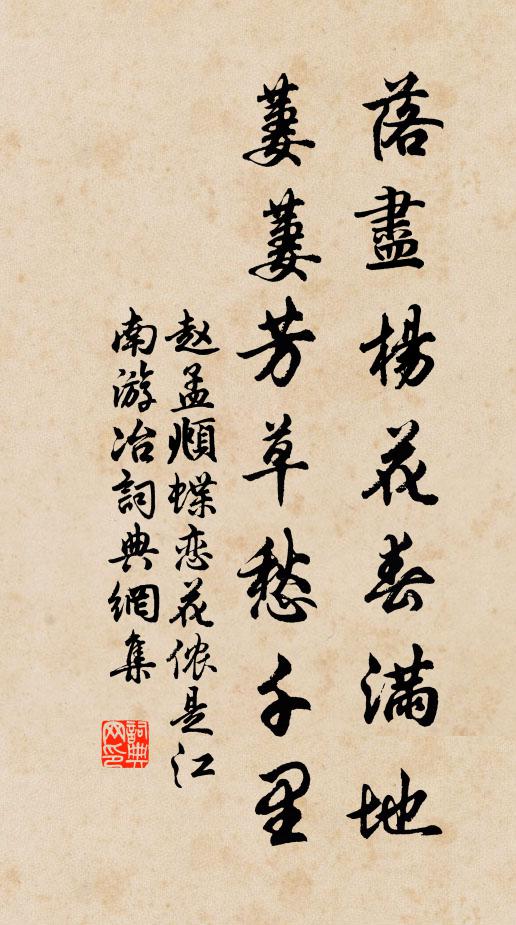 落盡楊花春滿地
萋萋芳草愁千里
赵孟頫蝶恋花侬是江
南游冶詞典網集
詞典網印